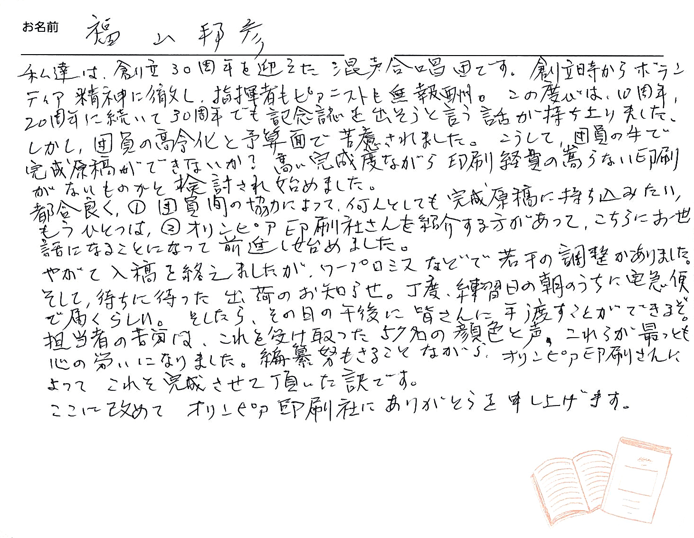 お名前 福山邦彦
私達は、創立30周年を迎えた混声合唱団です。創立時からボラン
ティア精神に徹し、指揮者もピアニストも無報酬。この度びは、10周年,
20周年に続いて30周年でも記念誌を出そうと言う話が持ち上りました。
しかし、団員の高令化と予算面で苦慮されました。こうして、団員の手で
完成原稿ができないか? 高い完成度ながら印刷経費の嵩らない印刷
がないものかと検討され始めました。
都合良く、① 団員間の協力によって、何んとしても完成原稿に持ち込みたい,
もうひとつは、② オリンピア印刷社さんを紹介する方があって、こちらにお世
話になることになって前進し始めました。
やがて入稿を終えましたが、ワープロミスなどで若干の調整がありました。
そして、待ちに待った出荷のお知らせ。丁度、練習日の朝のうちに宅急便
で届くらしい。そしたら、その日の午後に皆さんに手渡すことができるぞ。
担当者の苦労は、これを受け取った57名の顔色と声。これらが最っとも
心の労いになりました。編纂努もさることながら、オリンピア印刷さんに
よってこれを完成させて頂いた訳です。
ここに改めてオリンピア印刷社にありがとうを申し上げます。